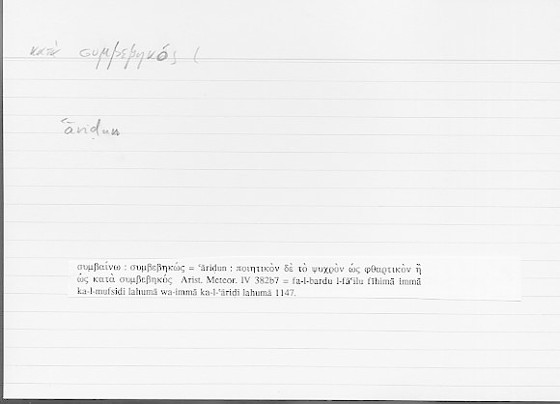 κατὰ συμβεβηκός (
ʿāriḍun
συμβαίνω : συμβεβηκώς = ʿāriḍun : ποιητικὸν δὲ τὸ ψυχρὸν ὡς φθαρτικὸν ἢ
ὡς κατὰ συμβεβηκός Arist. Meteor. IV 382b7 = fa-l-bardu l-fāʿilu fīhimā immā
ka-l-mufsidi lahumā wa-immā ka-l-ʿāriḍi lahumā 1147.